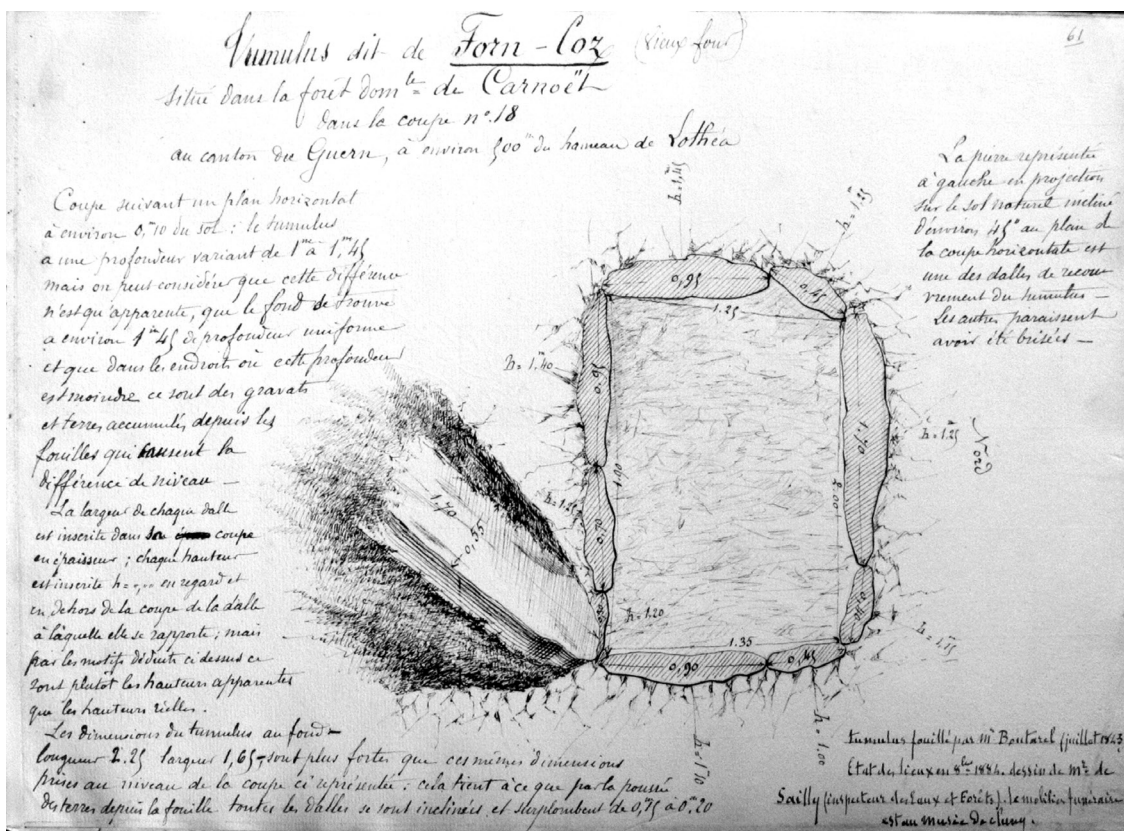 61
Tumulus dit de Forn-Coz (vieux four)
situé dans la forêt domle de Carnoët
dans la coupe no. 18
au canton du Guern, à environ 500m du hameau de Lothéa
Coupe suivant un plan horizontal
à environ 0,m10 du sol : le tumulus
a une profondeur variant de 1m à 1,m45
mais on peut considérer que cette différence
n'est qu'apparente, que le fond se trouve
à environ 1m45 de profondeur uniforme
et que dans les endroits où cette profondeur
est moindre ce sont des gravats
et terres accumulés depuis les
fouilles qui causent la
différence de niveau —
La largeur de chaque dalle
est inscrite dans sa coupe
en épaisseur ; chaque hauteur
est inscrite h=,,, en regard et
en dehors de la coupe de la dalle
à laquelle elle se rapporte ; mais
par les motifs déduits ci dessus ce
sont plutôt les hauteurs apparentes
que les hauteurs réelles.
Les dimensions du tumulus au fond —
longueur 2.25 largeur 1,65 — sont plus fortes que ces mêmes dimensions
prises au niveau de la coupe ci représentée : cela tient à ce que par la poussée
des terres depuis la fouille toutes les dalles se sont inclinées et surplombent de 0,15 à 0m20
La pierre représentée
à gauche en projection
sur le sol naturel incliné
d'environ 45° au plan de
la coupe horizontale est
une des dalles de recou
vrement du tumulus —
Les autres paraissent
avoir été brisées —
h=1.m45
h=1.m25
0,95
0,45
1.25
h=1.m40
1.70
h=1.m25
Nord
2.00
h=1.m25
0.70
1.70
0,55
h=1.20
1.35
0,90
0,45
h=1m10
h=1.00
tumulus fouillé par Mr Boutarel (juillet 1843
Etat des lieux en 8bre 1884. dessin de Mr de
Sailly (inspecteur des Eaux et Forêts). Le mobilier funéraire
est au Musée de Cluny.